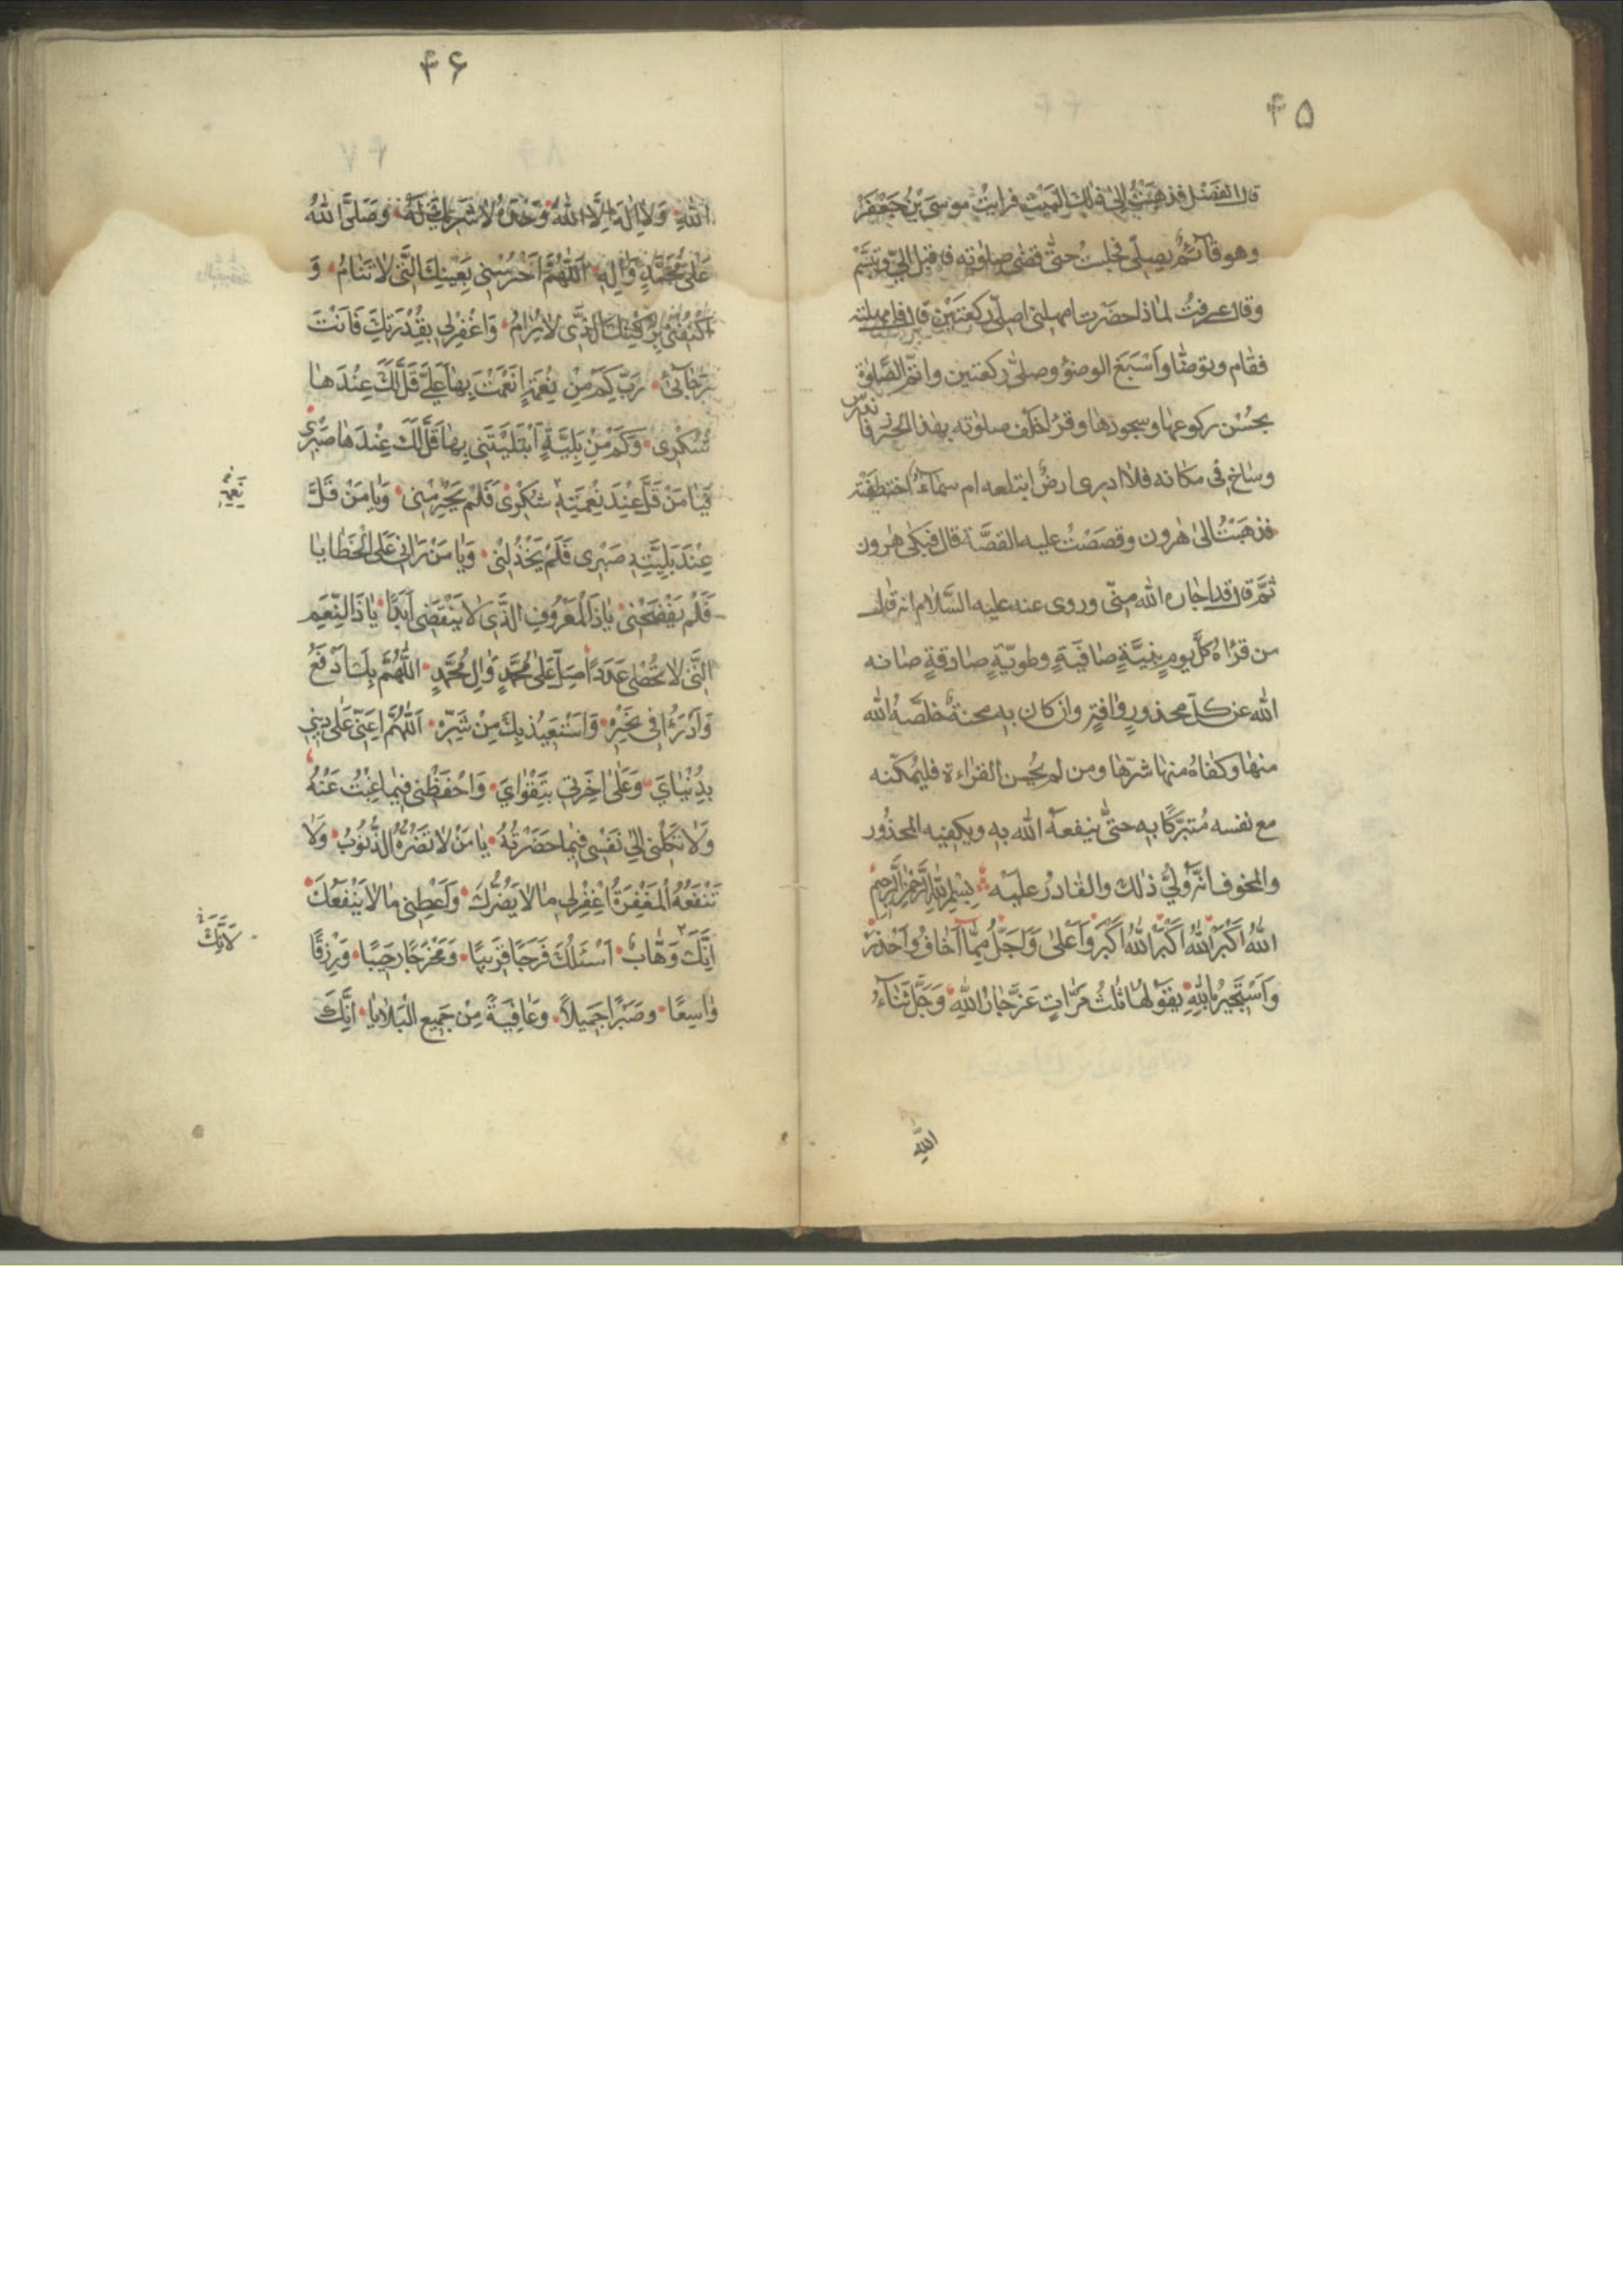 ۴۵
قال الفضل فذهبت الى ذلك البيت فرايت موسى بن جعفر
وهو قآئم يصلّى فجلست حتّى قضى صلوته فاقبل الىّ وتبسّم
وقال عرفتُ لماذا حضرت امهلنى اصلّى ركعتين قال فامهلته
فقام وتوضّا واَسْبَغ الوضوُء وصلّى ركعتين واتمّ الصّلوة
بحُسْن ركوعها وسجودها وقرُا خَلْف صلوته بهذا الحِرز فاندرس
وساخ فى مكانه فلا ادرى ارضٌ ابتلعه ام سماءٌ اختطفته
فذهَبْتُ الىٰ هٰرون وقصصْتُ عليه القصَّة قال فَبَكىٰ هٰرون
ثمَّ قال قد اجاره الله منّى وروى عنه عليه السَّلام انه قال
من قرُاه كلَّ يومٍ بنيَّةٍ صافيَةٍ وطويّةٍ صادقةٍ صانه
الله عن كلّ محذورٍ وافةٍ وان كان به محنةٌ خلصَّهُ الله
منها وكفاهُ منها شرّها ومن لم يُحسِن القراءة فليُمكّنه
مع نفسه مُتبرّكًا به حتّٰى ينفعهُ الله به ويكفيه المحذُور
والمخوف انَّه وليُّ ذٰلك والقادرُ عليه بِسْمِ اللهِ الرَّحْمٰنِ الرَّحِيمِ
اللهُ اَكْبَرُ اللهُ اَكْبَرُ اللهُ اَكْبَرُ وَاَعْلىٰ وَاَجَلُّ مِمَّا اَخافُ وَاَحْذَرُ
وَاَسْتَجِيرُ بِاللهِ يقوَلها ثلٰثُ مَرّاتٍ عَزَّ جارُ اللهِ وَجَلَّ ثَنآءُ
اللهِ
۴۶
اللهِ وَلا اِلٰهَ اِلَّا اللهُ وَحْدَهُ لا شَرِيكَ لَهُ وَصَلَّى اللهُ
عَلىٰ مُحَمَّدٍ وَاٰلِهِ اَللّٰهُمَّ احْرُسْنِى بِعَيْنِكَ الَّتى لا تَنامُ وَ
اكْنُفْنى بِرُكْنِكَ الَّذى لا يُرامُ وَاغْفِرْلى بِقُدْرَتِكَ فَاَنْتَ
رَجآئى رَبِّ كَمْ مِنْ نِعْمَةٍ اَنْعَمْتَ بِها عَلَىَّ قَلَّ لَكَ عِنْدَها
شُكْرى وَكَمْ مِنْ بَلِيَّةٍ اَبْتَلَيْتَنى بِها قَلَّ لَكَ عِنْدَها صَبْرى
فَيا مَنْ قَلَّ عِنْدَ نِعْمَتِهِ شُكْرى فَلَمْ يَحْرِمْنى وَيا مَنْ قَلَّ
نِعَمِهِ
عِنْدَ بَلِيَّتِهِ صَبْرى فَلَمْ يَخْذُلْنى وَيا مَنْ رَانى عَلَى الْخَطايا
فَلَمْ يَفْضَحْنى يا ذَا الْمَعْرُوفِ الَّذى لا يَنْقَضى اَبَدًا يا ذَا النِّعَمِ
الَّتى لا تُحْصىٰ عَدَدًا صَلِّ عَلىٰ مُحَمَّدٍ وَاٰلِ مُحَمَّدٍ اَللّٰهُمَّ بِكَ اَدْفَعُ
وَاَدْرَؤُا فى نَحْرِهِ وَاَسْتَعِيذُ بِكَ مِنْ شَرِّهِ اَللّٰهُمَّ اَعِنّى عَلىٰ دينى
بِدُنْياىَ وَعَلىٰ اخِرَتى بِتَقْواىَ وَاحْفَظْنى فِيما غِبْتُ عَنْهُ
وَلا تَكِلْنى اِلىٰ نَفْسى فِيما حَضَرْتُهُ يا مَنْ لا تَضُرُّهُ الذُّنُوبُ وَلا
تَنْفَعُهُ الْمَغْفِرَةُ اغْفِرْلى ما لا يَضُرُّكَ وَاَعْطِنى ما لا يَنْفَعُكَ
اِنَّكَ وَهّابٌ اَسْئَلُكَ فَرَجًا قَرِيبًا وَمَخْرَجًا رَحِيبًا وَرِزْقًا
لِاَنَّكَ
واسِعًا وصَبْرًا جَمِيلاً وَعافِيَةً مِنْ جَمِيعِ الْبَلايا اِنَّكَ